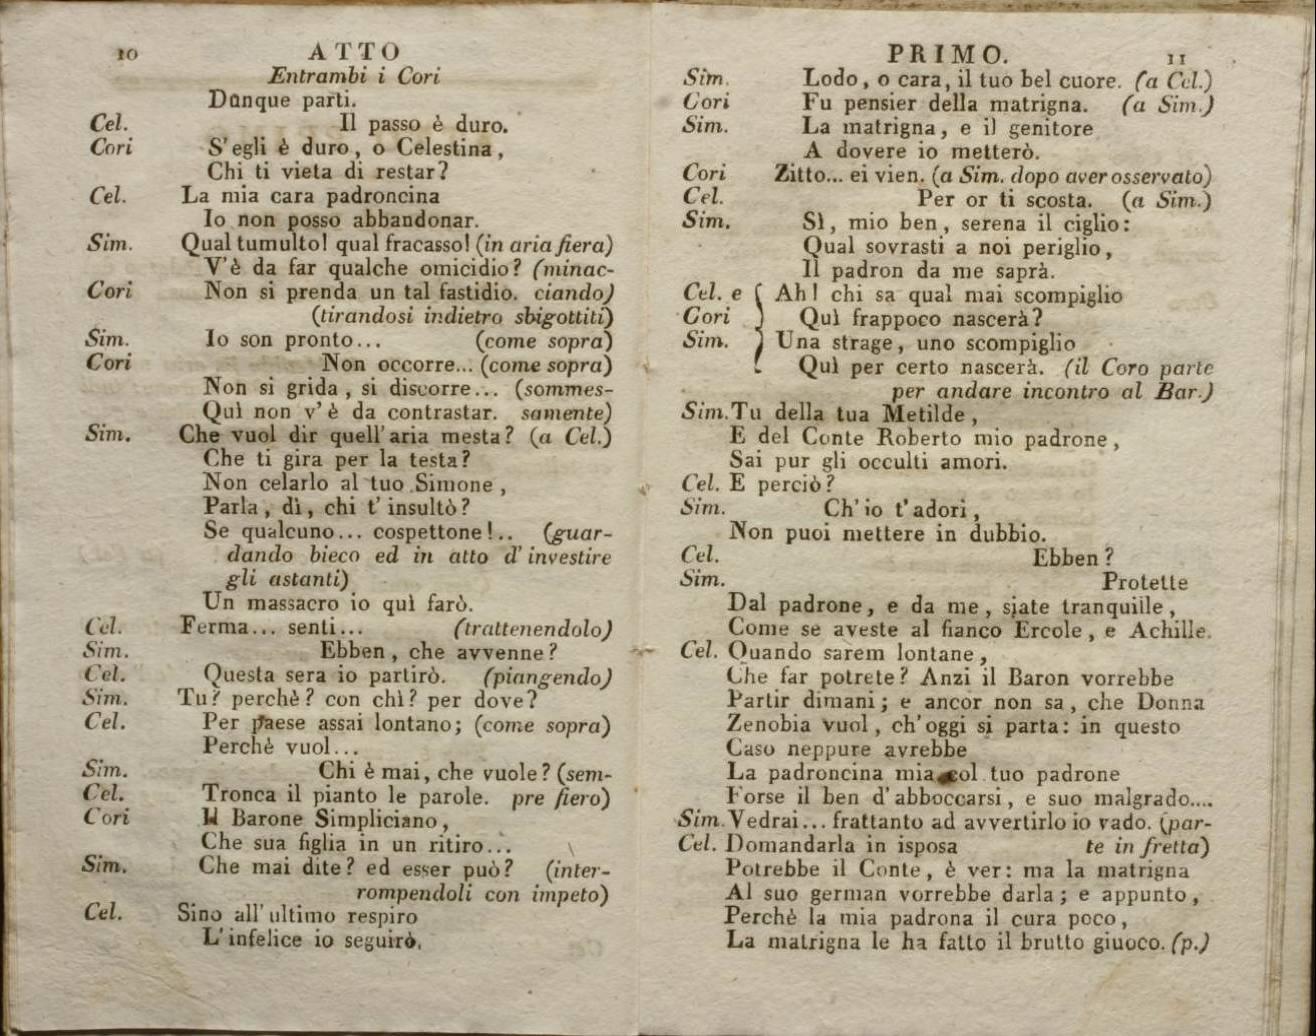 10
ATTO
Entrambi i Cori
Dunque parti.
Cel. Il passo è duro.
Cori S'egli è duro, o Celestina,
Chi ti vieta di restar?
Cel. La mia cara padroncina
Io non posso abbandonar.
Sim. Qual tumulto! qual fracasso! (in aria fiera)
V'è da far qualche omicidio? (minac-
Cori Non si prenda un tal fastidio. ciando)
(tirandosi indietro sbigottiti)
Sim. Io son pronto... (come sopra)
Cori Non occorre... (come sopra)
Non si grida, si discorre... (sommes-
Quì non v'è da contrastar. samente)
Sim. Che vuol dir quell'aria mesta? (a Cel.)
Che ti gira per la testa?
Non celarlo al tuo Simone,
Parla, dì, chi t'insultò?
Se qualcuno... cospettone!.. (guar-
dando bieco ed in atto d'investire
gli astanti)
Un massacro io quì farò.
Cel. Ferma... senti... (trattenendolo)
Sim. Ebben, che avvenne?
Cel. Questa sera io partirò. (piangendo)
Sim. Tu? perchè? con chì? per dove?
Cel. Per paese assai lontano; (come sopra)
Perchè vuol...
Sim. Chi è mai, che vuole? (sem-
Cel. Tronca il pianto le parole. pre fiero)
Cori Il Barone Simpliciano,
Che sua figlia in un ritiro...
Sim. Che mai dite? ed esser può? (inter-
rompendoli con impeto)
Cel. Sino all'ultimo respiro
L'infelice io seguirò.
PRIMO.
11
Sim. Lodo, o cara, il tuo bel cuore. (a Cel.)
Cori Fu pensier della matrigna. (a Sim.)
Sim. La matrigna, e il genitore
A dovere io metterò.
Cori Zitto... ei vien. (a Sim. dopo aver osservato)
Cel. Per or ti scosta. (a Sim.)
Sim. Sì, mio ben, serena il ciglio:
Qual sovrasti a noi periglio,
Il padron da me saprà.
Cel. e Ah! chi sa qual mai scompiglio
Cori Quì frappoco nascerà?
Sim. Una strage, uno scompiglio
Quì per certo nascerà. (il Coro parte
per andare incontro al Bar.)
Sim. Tu della tua Metilde,
E del Conte Roberto mio padrone,
Sai pur gli occulti amori.
Cel. E perciò?
Sim. Ch'io t'adori,
Non puoi mettere in dubbio.
Cel. Ebben?
Sim. Protette
Dal padrone, e da me, siate tranquille,
Come se aveste al fianco Ercole, e Achille.
Cel. Quando sarem lontane,
Che far potrete? Anzi il Baron vorrebbe
Partir dimani; e ancor non sa, che Donna
Zenobia vuol, ch'oggi si parta: in questo
Caso neppure avrebbe
La padroncina mia col tuo padrone
Forse il ben d'abboccarsi, e suo malgrado....
Sim. Vedrai... frattanto ad avvertirlo io vado. (par-
Cel. Domandarla in isposa te in fretta)
Potrebbe il Conte, è ver: ma la matrigna
Al suo german vorrebbe darla; e appunto,
Perchè la mia padrona il cura poco,
La matrigna le ha fatto il brutto giuoco. (p.)